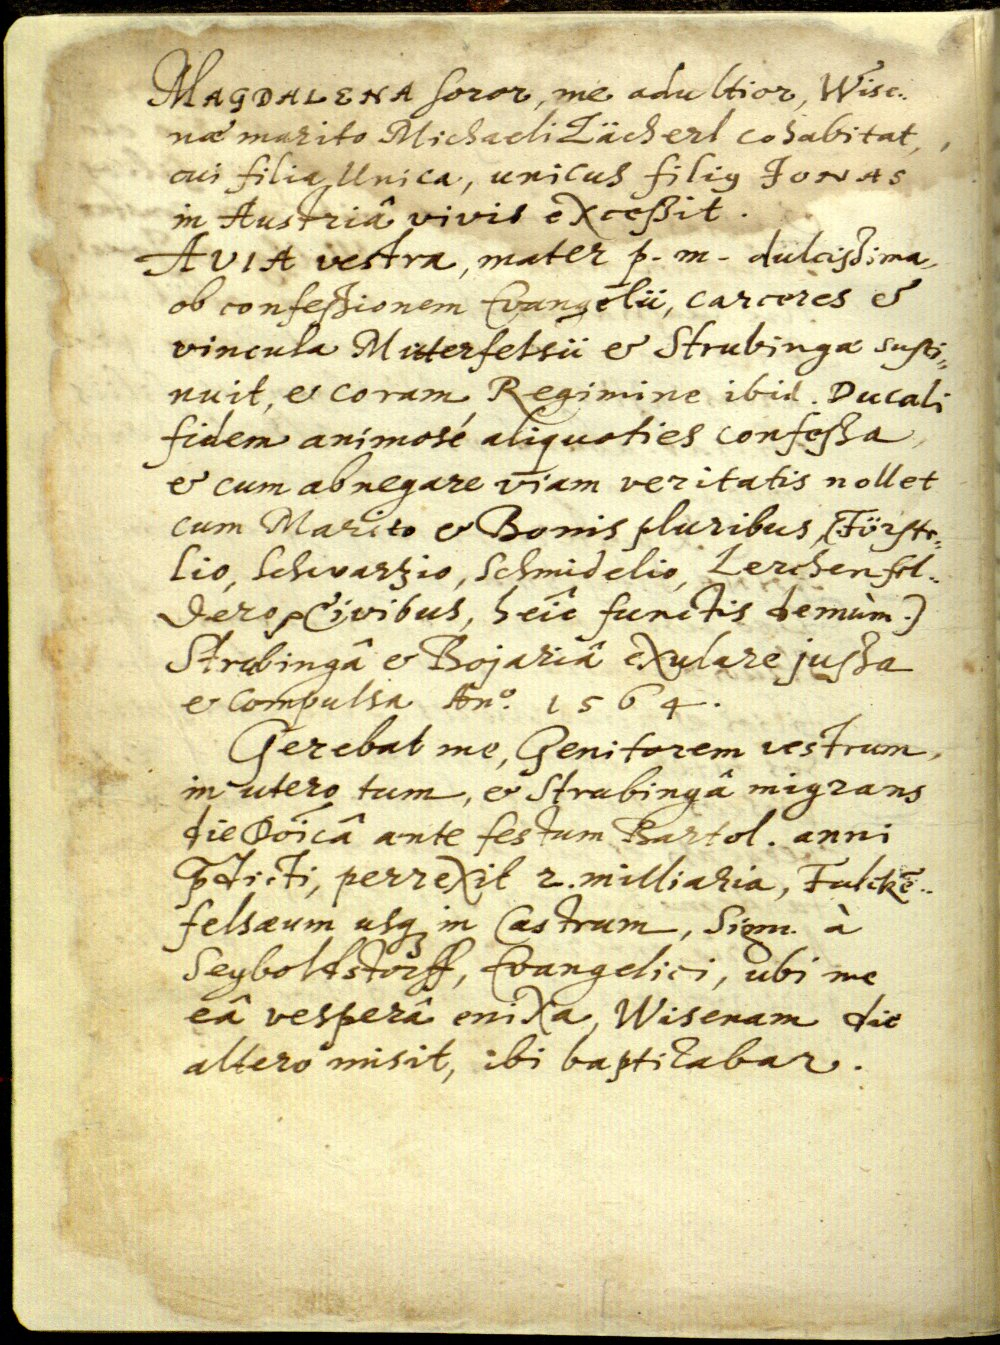 MAGDALENA soror, me adultior, Wise..
næ marito Michaeli Zächerl cohabitat,
cui filia Unica, unicus filiꝰ JONAS
in Austriâ vivis exceßit.
AVIA vestra, mater p. m. dulcißima,
ob confeßionem Evangelii, carceres &
vincula Mitterfelsii & Strubingæ susti„
nuit, & coram Regimine ibid. Ducali
fidem animosé aliquoties confeßa,
& cum abnegare viam veritatis nollet
cum Marito & Bonis pluribus, (Förste„
lio, Schwarzio, Schmidelio, Lerchenfel„
dero, Civibus, heîc functis demùm.)
Strubingâ & Bojariâ exulare jußa
& compulsa Anº. 1564.
Gerebat me, Genitorem vestrum,
in utero tum, & Strubingâ migrans
die Dõicâ ante festum Bartol. anni
p̃dicti, perrexit 2. milliaria, Falckẽ..
felsæum usqꝫ in Castrum, Sigm. à
Seyboltstorff, Evangelici, ubi me
eâ vesperâ enixa, Wisenam die
altero misit, ibi baptizabar.